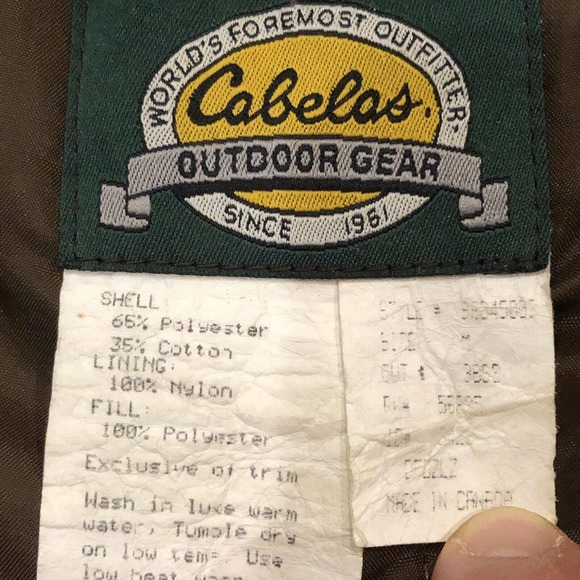 WORLD'S FOREMOST OUTFITTER.
Cabelas.
OUTDOOR GEAR
SINCE 1961
SHELL:
65% Polyester
35% Cotton
LINING:
100% Nylon
FILL:
100% Polyester
Exclusive of trim
Wash in luke warm
water, Tumble dry
on low tem=. Use
low heat
STYLE #
SIZE M
CUT #
MADE IN CANADA